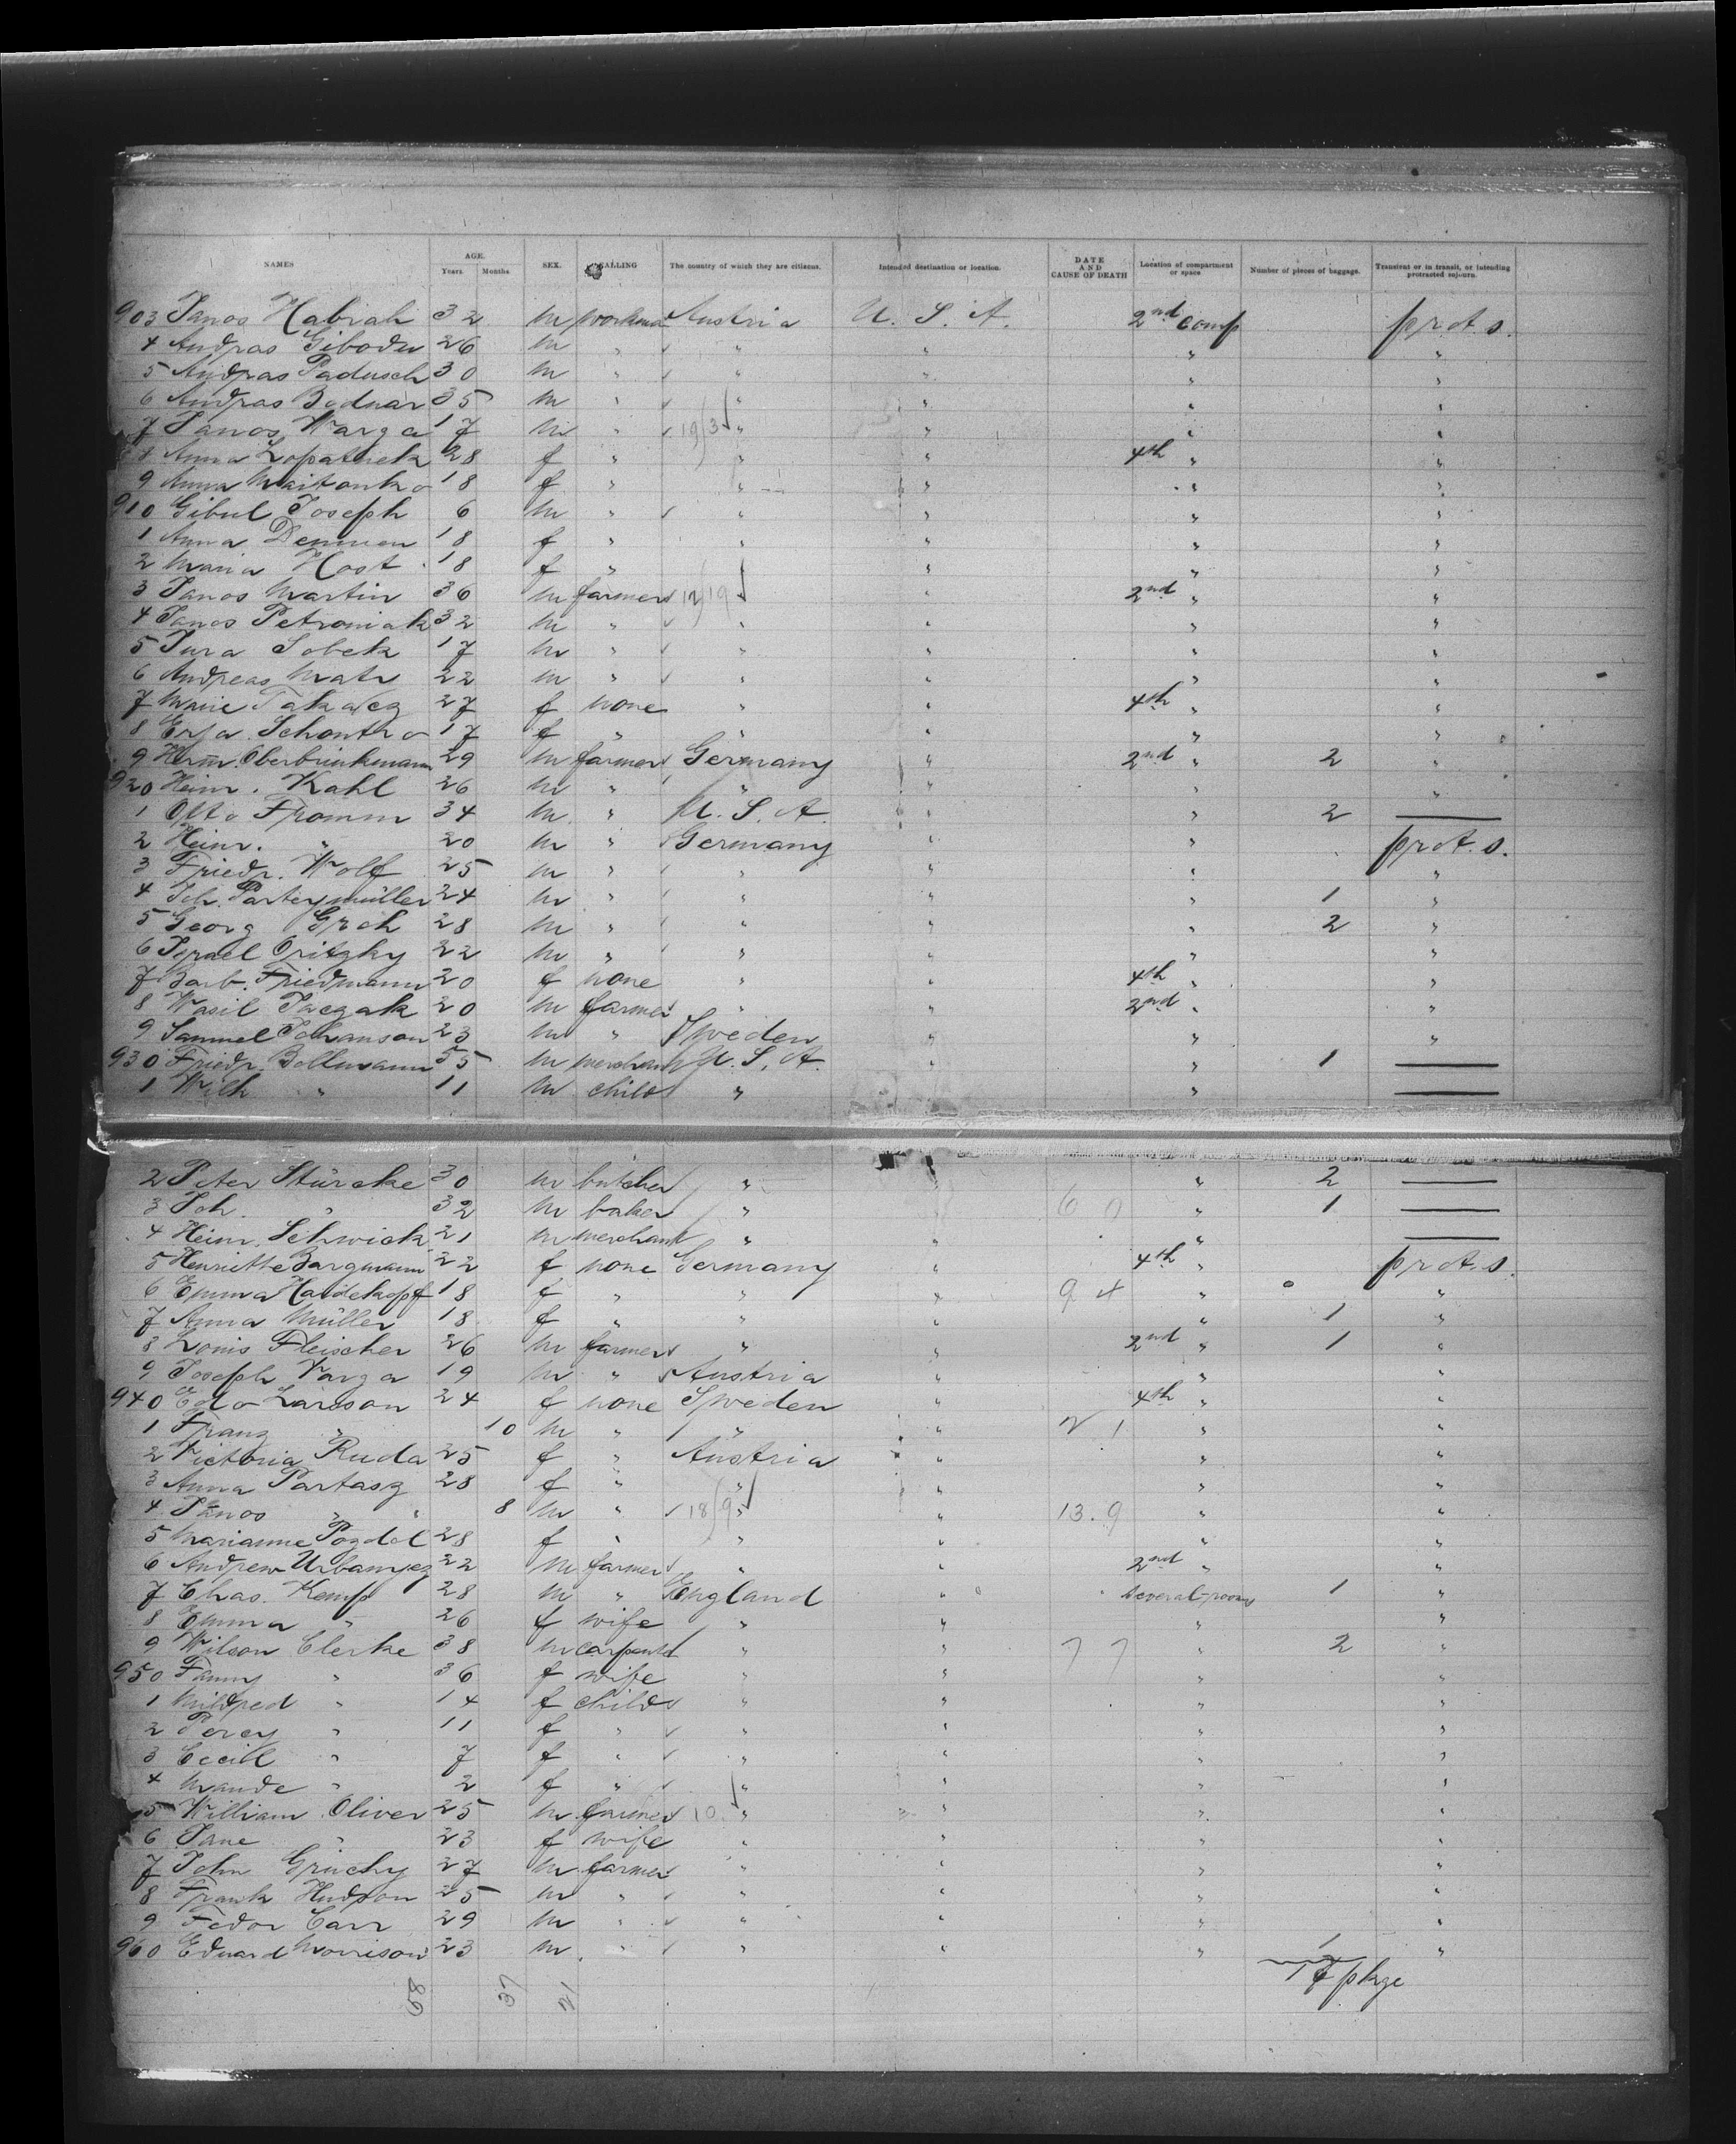 NAMES AGE. Years. Months. SEX. CALLING The country of which they are citizens. Intended destination or location. DATE AND CAUSE OF DEATH Location of compartment or space. Number of pieces of baggage. Transient or in transit, or intending protracted sojourn.
903 Janos Habrah 32 m workman Austria U. S. A. 2nd comp prot. s.
4 Andras Gibodu 26 m " " " " "
5 Andras Padusch 30 m " " " " "
6 Andras Bodnar 35 m " " " " "
7 Janos Warga 17 m " 19/3 " " " "
8 Anna Lopatnek 28 f " " " 4th " "
9 Anna Maitonko 18 f " " " " "
910 Gibul Joseph 6 m " " " " "
1 Anna Demmen 18 f " " " " "
2 Maria Host 18 f " " " "
3 Janos Martin 36 m farmer 12/19 " 2nd " "
4 Janos Petroniak 32 m " " " " "
5 Jura Sobek 17 m " " " " "
6 Andreas Matr 22 m " " " " "
7 Marie Takacz 27 f none " " 4th " "
8 Erja Schontro 17 f " " " " "
9 Herm. Oberbrinkmann 29 m farmer Germany " 2nd " 2 "
920 Heinr. Kahl 26 m " " " " "
1 Otto Fromm 34 m " U. S. A. " " 2
2 Heinr. " 20 m " Germany " " prot. s.
3 Friedr. Wolf 25 m " " " " "
4 Joh. Parteymüller 24 m " " " " 1 "
5 Georg Groh 28 m " " " " 2 "
6 Israel Oritzky 22 m " " " " "
7 Barb. Friedmann 20 f none " " 4th " "
8 Wasil Jaczak 20 m farmer " " 2nd " "
9 Samuel Johanson 23 m " Sweden " " "
930 Friedr. Bollmann 55 m merchant U. S. A. " " 1
1 Wilh " 11 m child " "
2 Peter Stürcke 30 m butcher " " " 2
3 Joh. " 32 m baker " 6 0 " 1
4 Heinr. Schwick 21 m merchant " " "
5 Henriette Bargmann 22 f none Germany " 4th " prot. s.
6 Emma Haidekopf 18 f " " " 9 4 " "
7 Anna Müller 18 f " " " " 1 "
8 Louis Fleischer 26 m farmer " " 2nd " 1 "
9 Joseph Varga 19 m " Austria " " "
940 Edo Larsson 24 f none Sweden " 4th " "
1 Franz " 10 m " " " 2 1 " "
2 Victoria Ruda 25 f " Austria " " "
3 Anna Partasz 28 f " " " " "
4 Janos " " 8 m " 18/9 " " 13.9 " "
5 Marianne Pozdol 28 f " " " " "
6 Andrew Urbanyez 22 m farmer " " 2nd " "
7 Chas. Kemp 28 m " England " several rooms 1 "
8 Emma " 26 f wife " " " "
9 Wilson Clerke 38 m carpenter " " 7 7 " 2 "
950 Fanny " 36 f wife " " " "
1 Mildred " 14 f child " " " "
2 Percy " 11 f " " " " "
3 Cecil " 7 f " " " " "
4 Maude " 2 f " " " " "
5 William Oliver 25 m farmer 10 " " " "
6 Jane " 23 f wife " " " "
7 John Gruchy 27 m farmer " " " "
8 Frank Hudson 25 m " " " " "
9 Fedor Carr 29 m " " " " "
960 Eduard Morrison 23 m " " " " 1 "
17 pkge
58 37 21